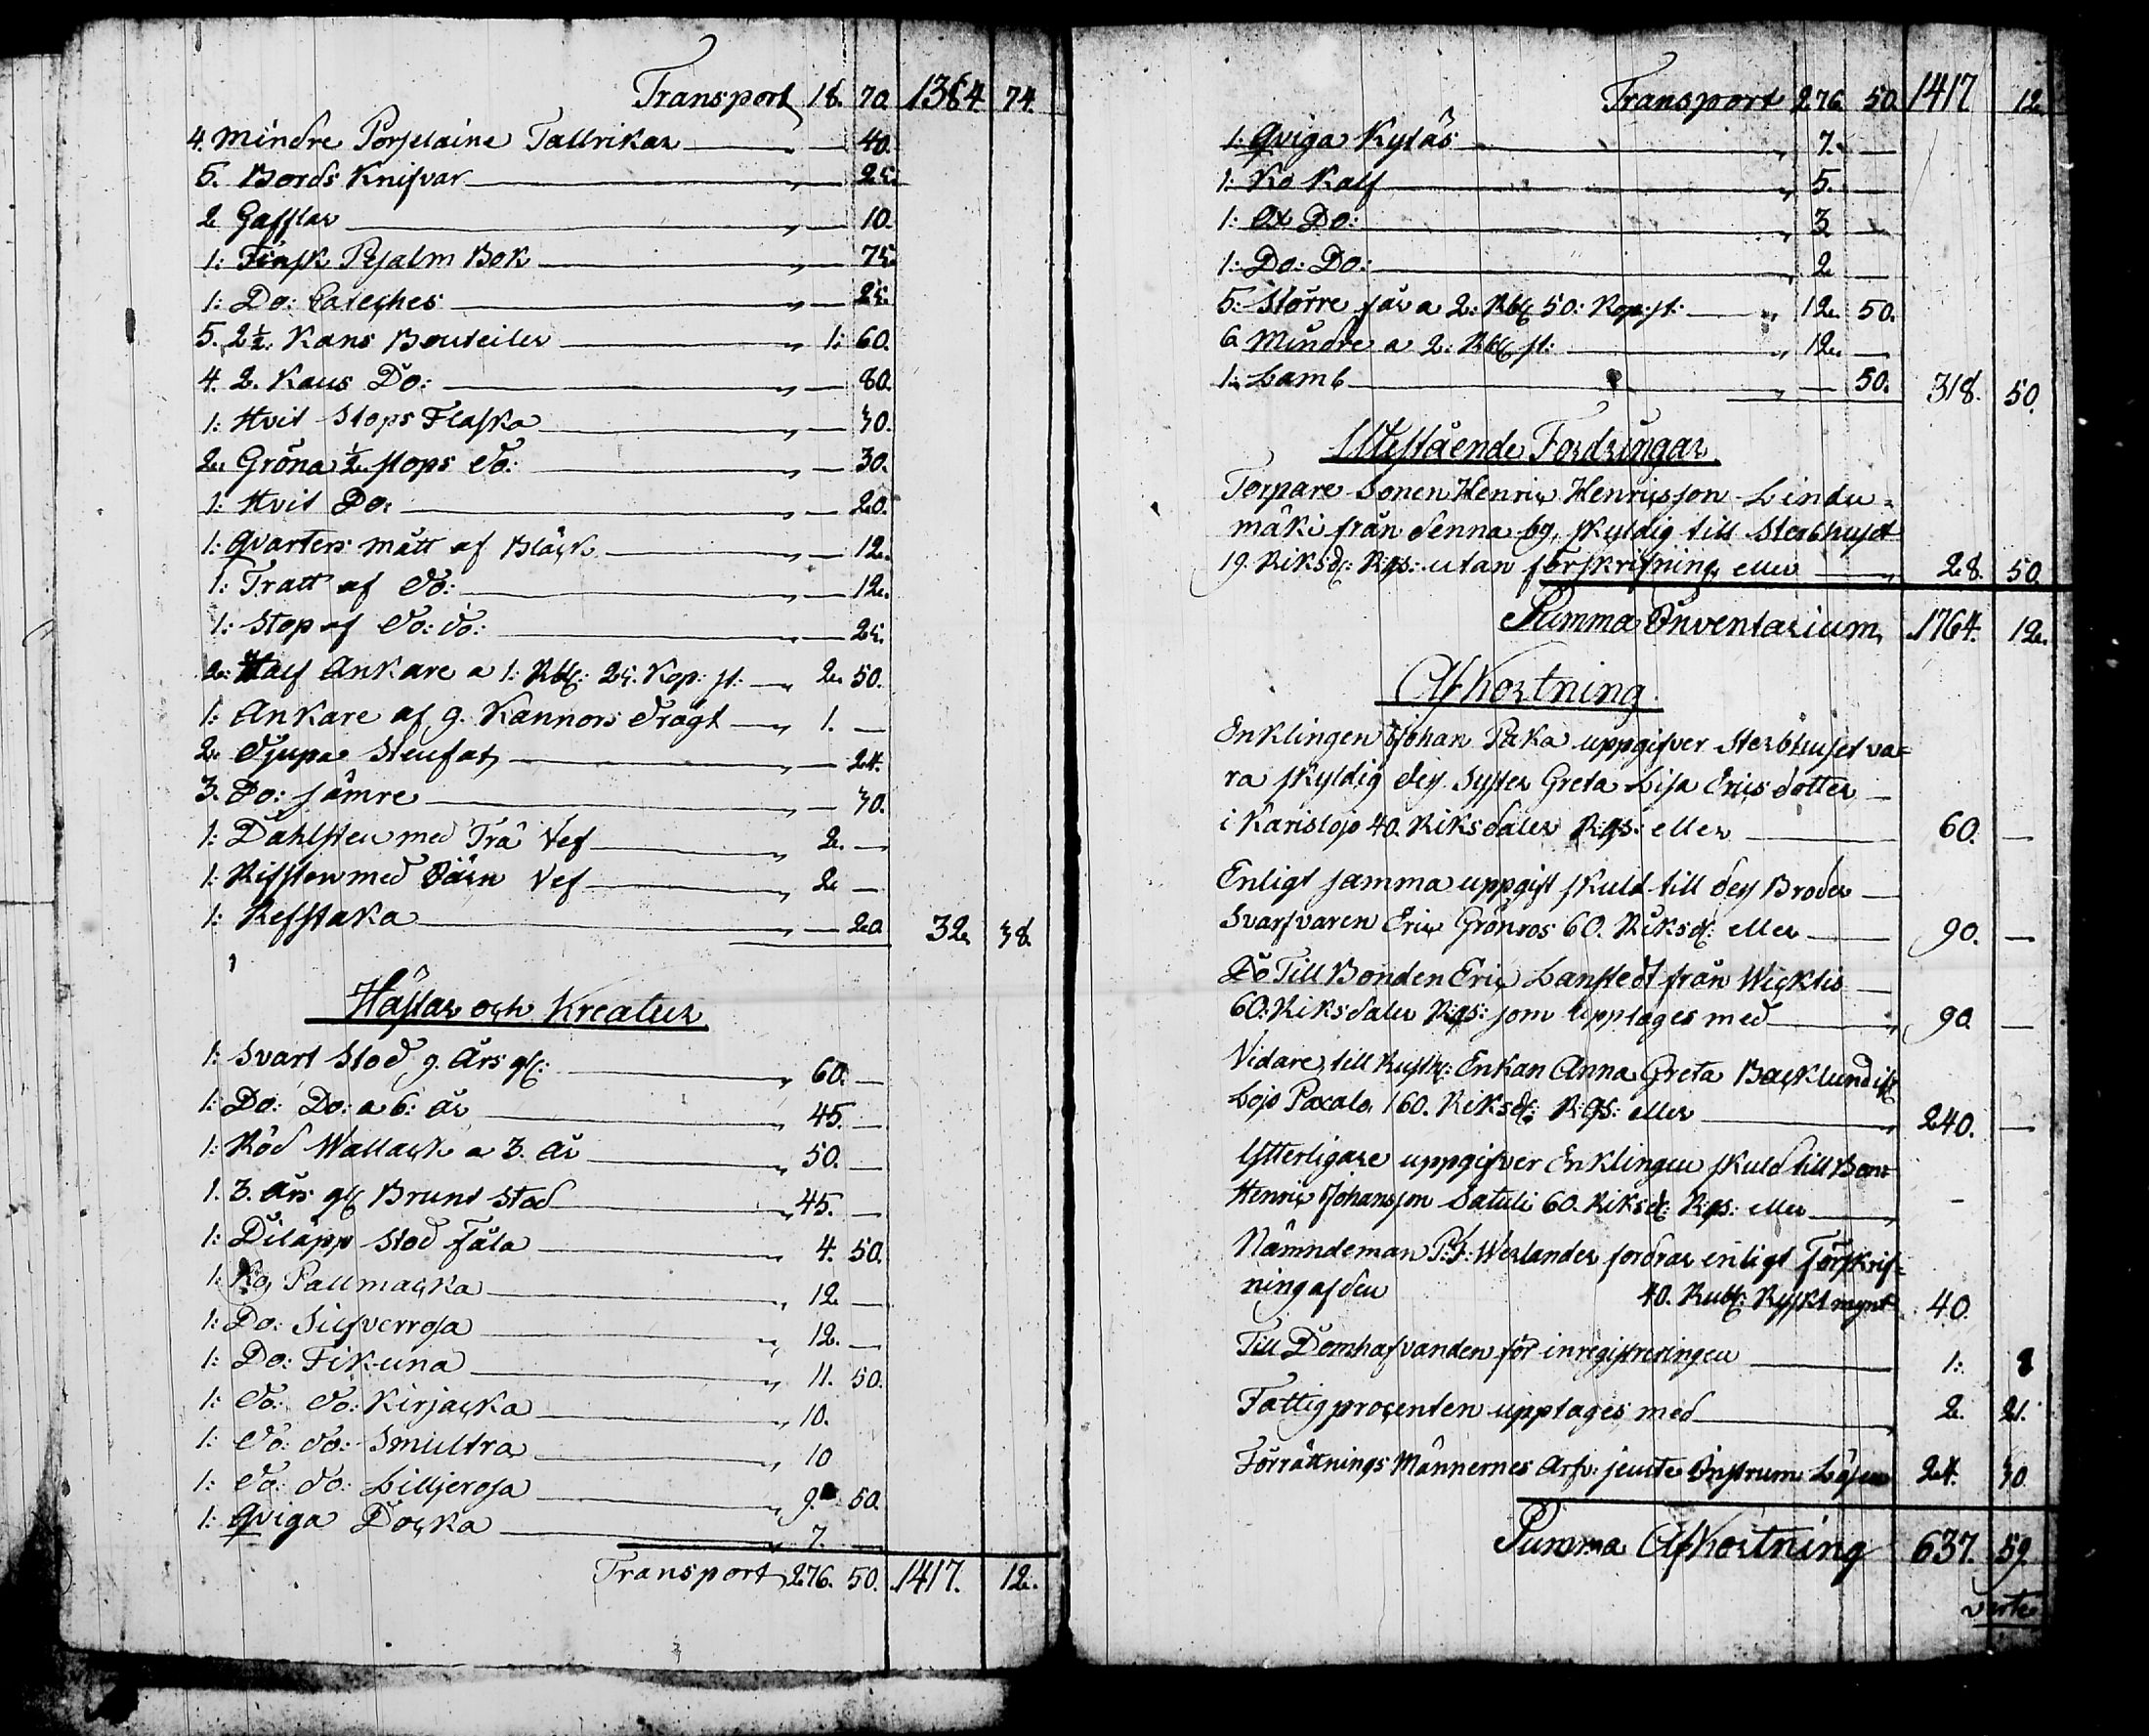 Transport 18. 70. 1384. 74.
4. Mindre Porslaine Tallrikar — 40.
5. Bords Knifvar — 25.
2 Gafflar — 10.
1: Finsk Psalm Bok — 75.
1: Do: Cateches — 25.
5. 2½. Kans Bouteiler 1: 60.
4. 2. Kans Do: — 80.
1: Hvit Stops Flaska — 30.
2. Gröna ½ stops do: — 30.
1: Hvit Do: — 20.
1: Qvarters mått af Bläck — 12.
1: Tratt af do: — 12.
1: Stop af do: do: — 25.
2: Half Ankare a 1: Rbl: 25. Kop: st: 2. 50.
1: Ankare af 9. Kannors dragt 1. —
2. Djupa Stenfat — 24.
3. Do: sämre — 30.
1: Dahlsten med Trä Vef 2. —
1: Rifsten med Järn Vef 2 —
1: Refstaka — 20. 32. 38.
Hästar och Kreatur
1: Svart Stod 9. Års gl: 60. —
1: Do: Do: a 6: år 45. —
1: Röd Wallack a 3. år 50. —
1. 3. Års gl Brunt Stod 45. —
1: Dilapp Stod Fåla 4. 50.
1: Ko Pallmacka 12 —
1: Do: Silfverrosa 12. —
1: Do: Fikuna 11. 50.
1: do: do: Kirjacka 10.
1: do: do: Smultra 10
1: do: do: Lilljerosa 9. 50.
1: Qviga Docka 7. —
Transport 276. 50. 1417. 12.
Transport 276 50. 1417 12.
1: Qviga Kyläs 7. —
1: Ko Kalf 5. —
1: Ox Do: 3 —
1: Do: Do: 2 —
5: Större får a 2: Rbl 50: Kop: st: 12. 50.
6 Mindre a 2: Rbl st: 12. —
1: Lamb — 50. 318. 50.
Utestående Fordringar
Torpare Sonen Henric Henricsson Lindu=
mäki från denna by, skyldig till Sterbhuset
19. Riksd: Rgs: utan förskrifning eller 28. 50.
Summa Inventarium 1764. 12.
Afkortning.
Enklingen Johan Päka uppgifver Sterbhuset va=
ra skyldig des Syster Greta Lisa Ericsdotter
i Karislojo 40. Riksdaler Rgs: eller 60. —
Enligt samma uppgift skuld till des Broder
Svarfvaren Eric Grönroos 60. Riksd: eller 90. —
Do Till Bonden Eric Lanstedt från Wicktis
60: Riksdaler Rgs: som upptages med 90 —
Vidare, till Rusth: Enkan Anna Greta Backlund
Lojo Paxalo 160. Riksd: Rgs: eller 240. —
Ytterligare uppgifver Enklingen skuld till Bond
Henric Johansson Satuli 60. Riksd: Rgs: eller —
Nämndeman Werlander fordrar enligt Förskrif=
ning af den 40. Rubl: Ryskt mynt 40.
Till Domhafvanden för inregistreringen 1: 8
Fattigprocenten upptages med 2. 21.
Förrättnings Männernes Arfv: jemte Instrum: Lösen 24. 30
Summa Afkortning 637. 59
verte